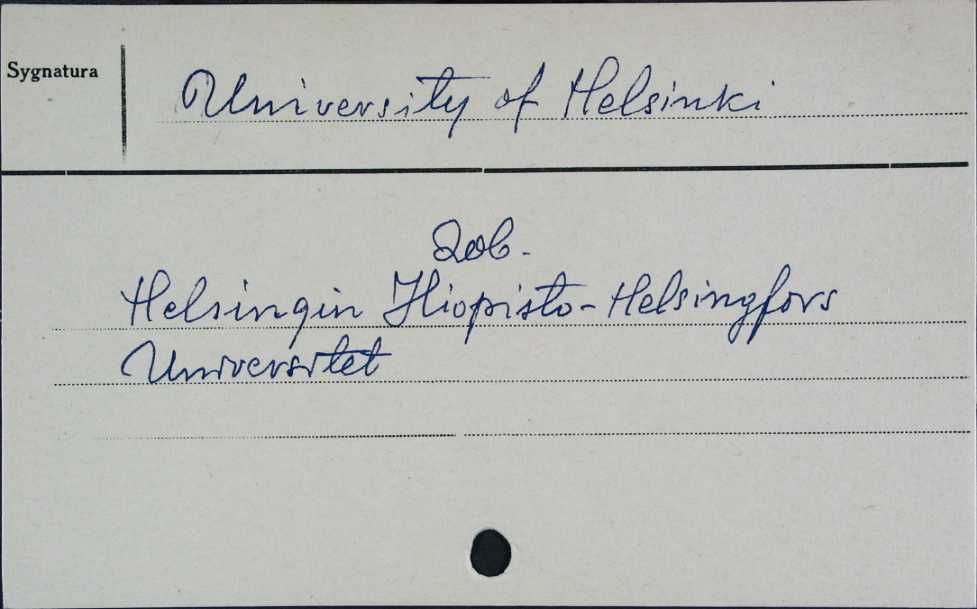 Sygnatura
University of Helsinki
zob.
Helsingin Yliopisto - Helsingfors
Universitet